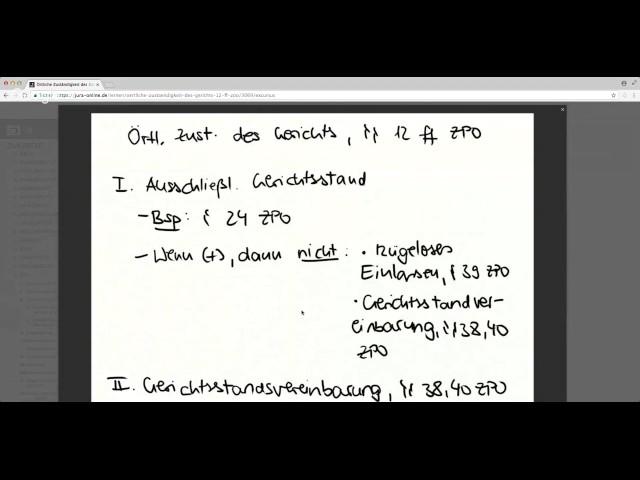 Örtliche Zuständigkeit des
https://jura-online.de/lernen/oertliche-zustaendigkeit-des-gerichts-12-ff-zpo/3069/excursus
Örtl. Zust. des Gerichts, §§ 12 ff ZPO
I. Ausschließl. Gerichtsstand
- Bsp: § 24 ZPO
- Wenn (+), dann nicht: • Rügeloses
Einlassen, § 39 ZPO
• Gerichtsstandver-
einbarung, §§ 38, 40
ZPO
II. Gerichtsstandsvereinbarung, §§ 38, 40 ZPO